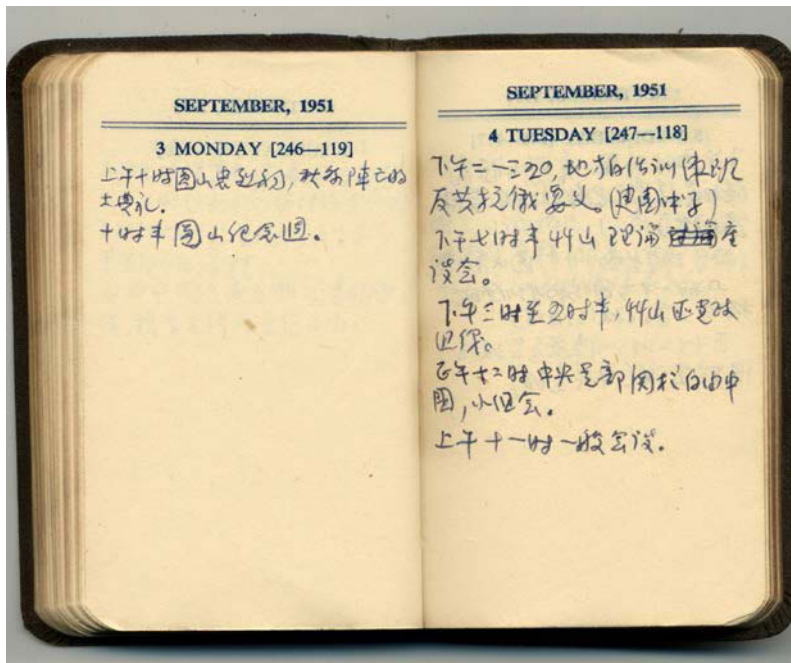 SEPTEMBER, 1951
3 MONDAY [246—119]
上午十时圆山忠烈祠,秋祭阵亡将
士典礼.
十时半圆山纪念週。
SEPTEMBER, 1951
4 TUESDAY [247—118]
下午二—三20,地方自治训练班
反共抗俄要义。(建国中学)
下午七时半竹山理论座
谈会。
下午三时至五时半,竹山
正午十二时中央党部关于自由中
国,小组会。
上午十一时一般会谈。